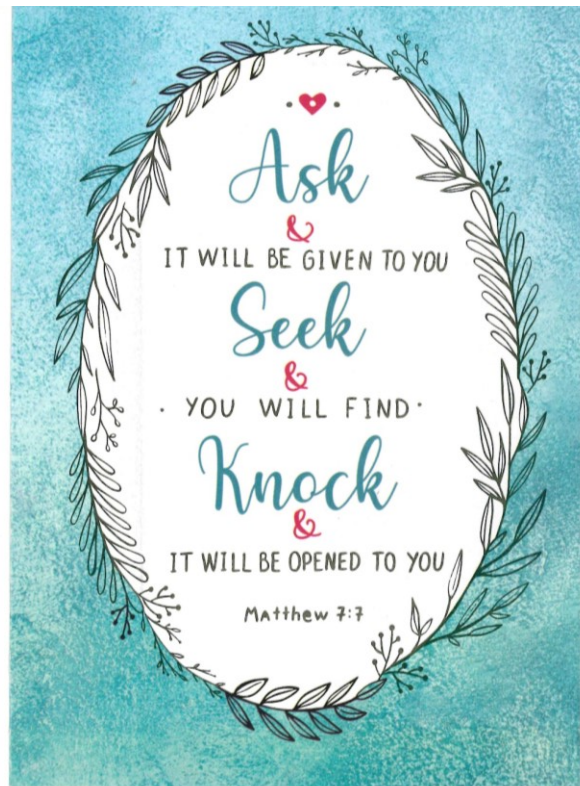 Ask
&
IT WILL BE GIVEN TO YOU
Seek
&
· YOU WILL FIND ·
Knock
&
IT WILL BE OPENED TO YOU
Matthew 7:7